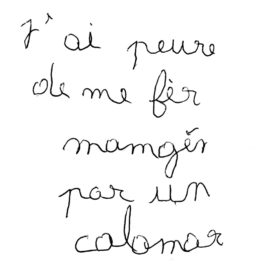 J'ai peure
de me fèr
mamgér
par un
calamar